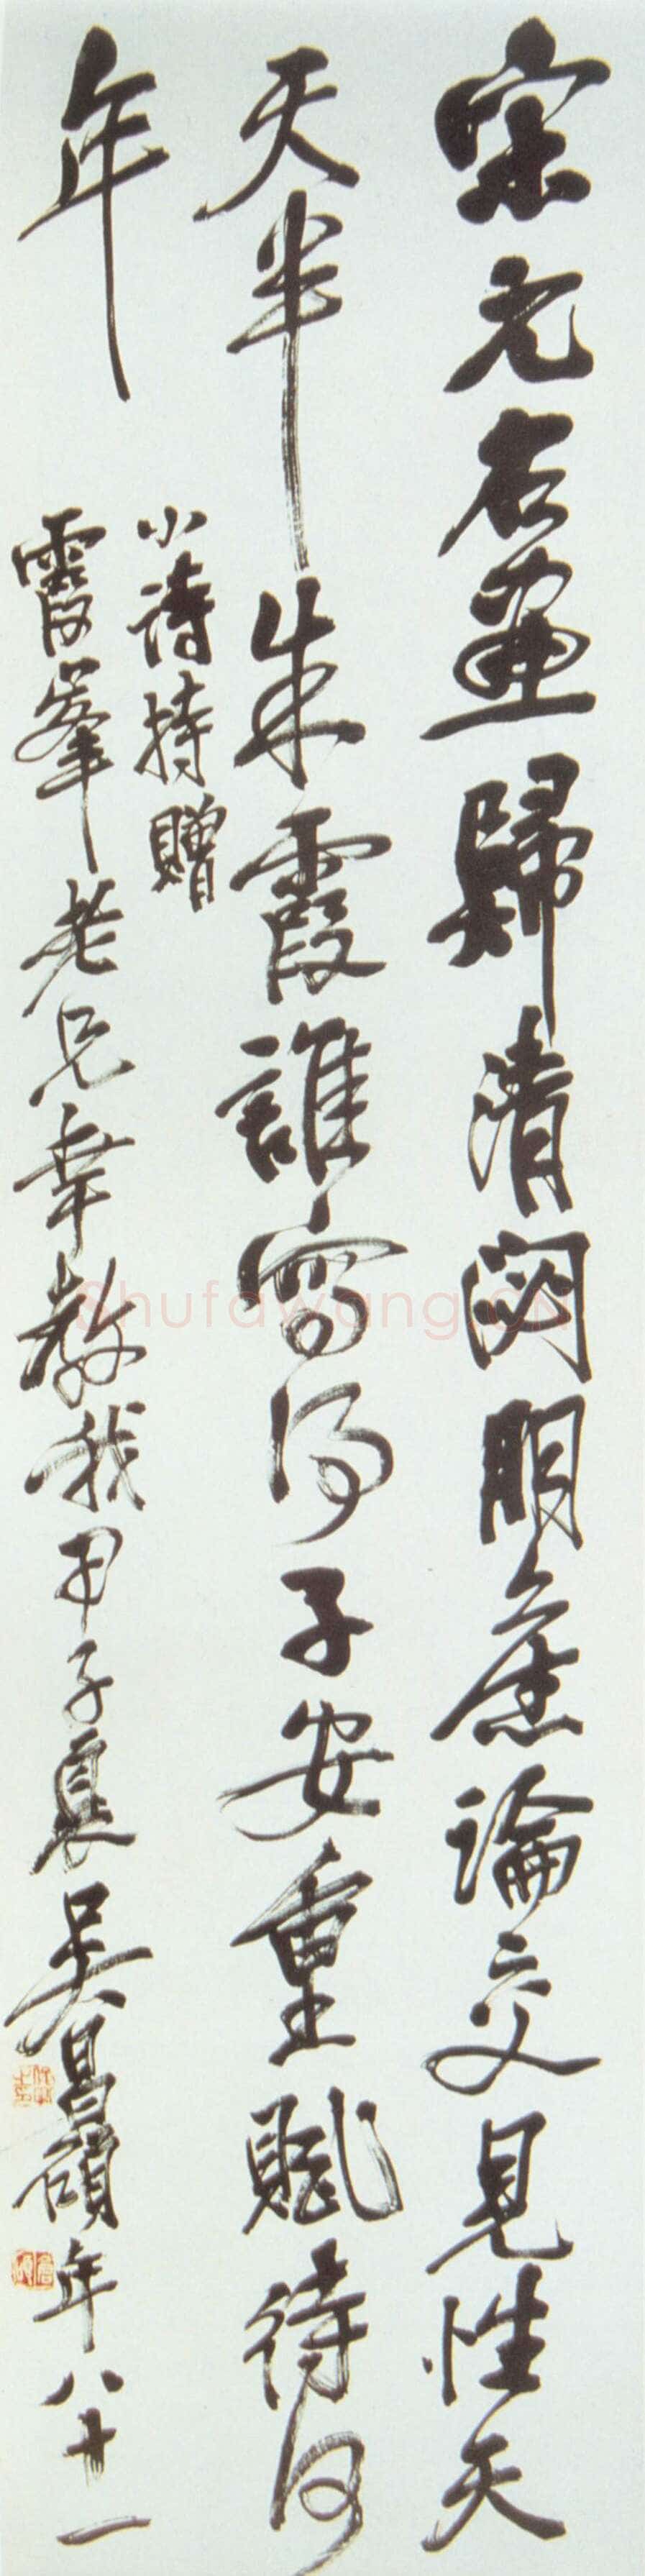 宋元畫歸清閟朋論交見性天
天半朱霞誰寫得子安重賦待何
年
小詩持贈
霞峯老兄幸教我甲子夏吳昌碩年八十一
Shufawang.CN